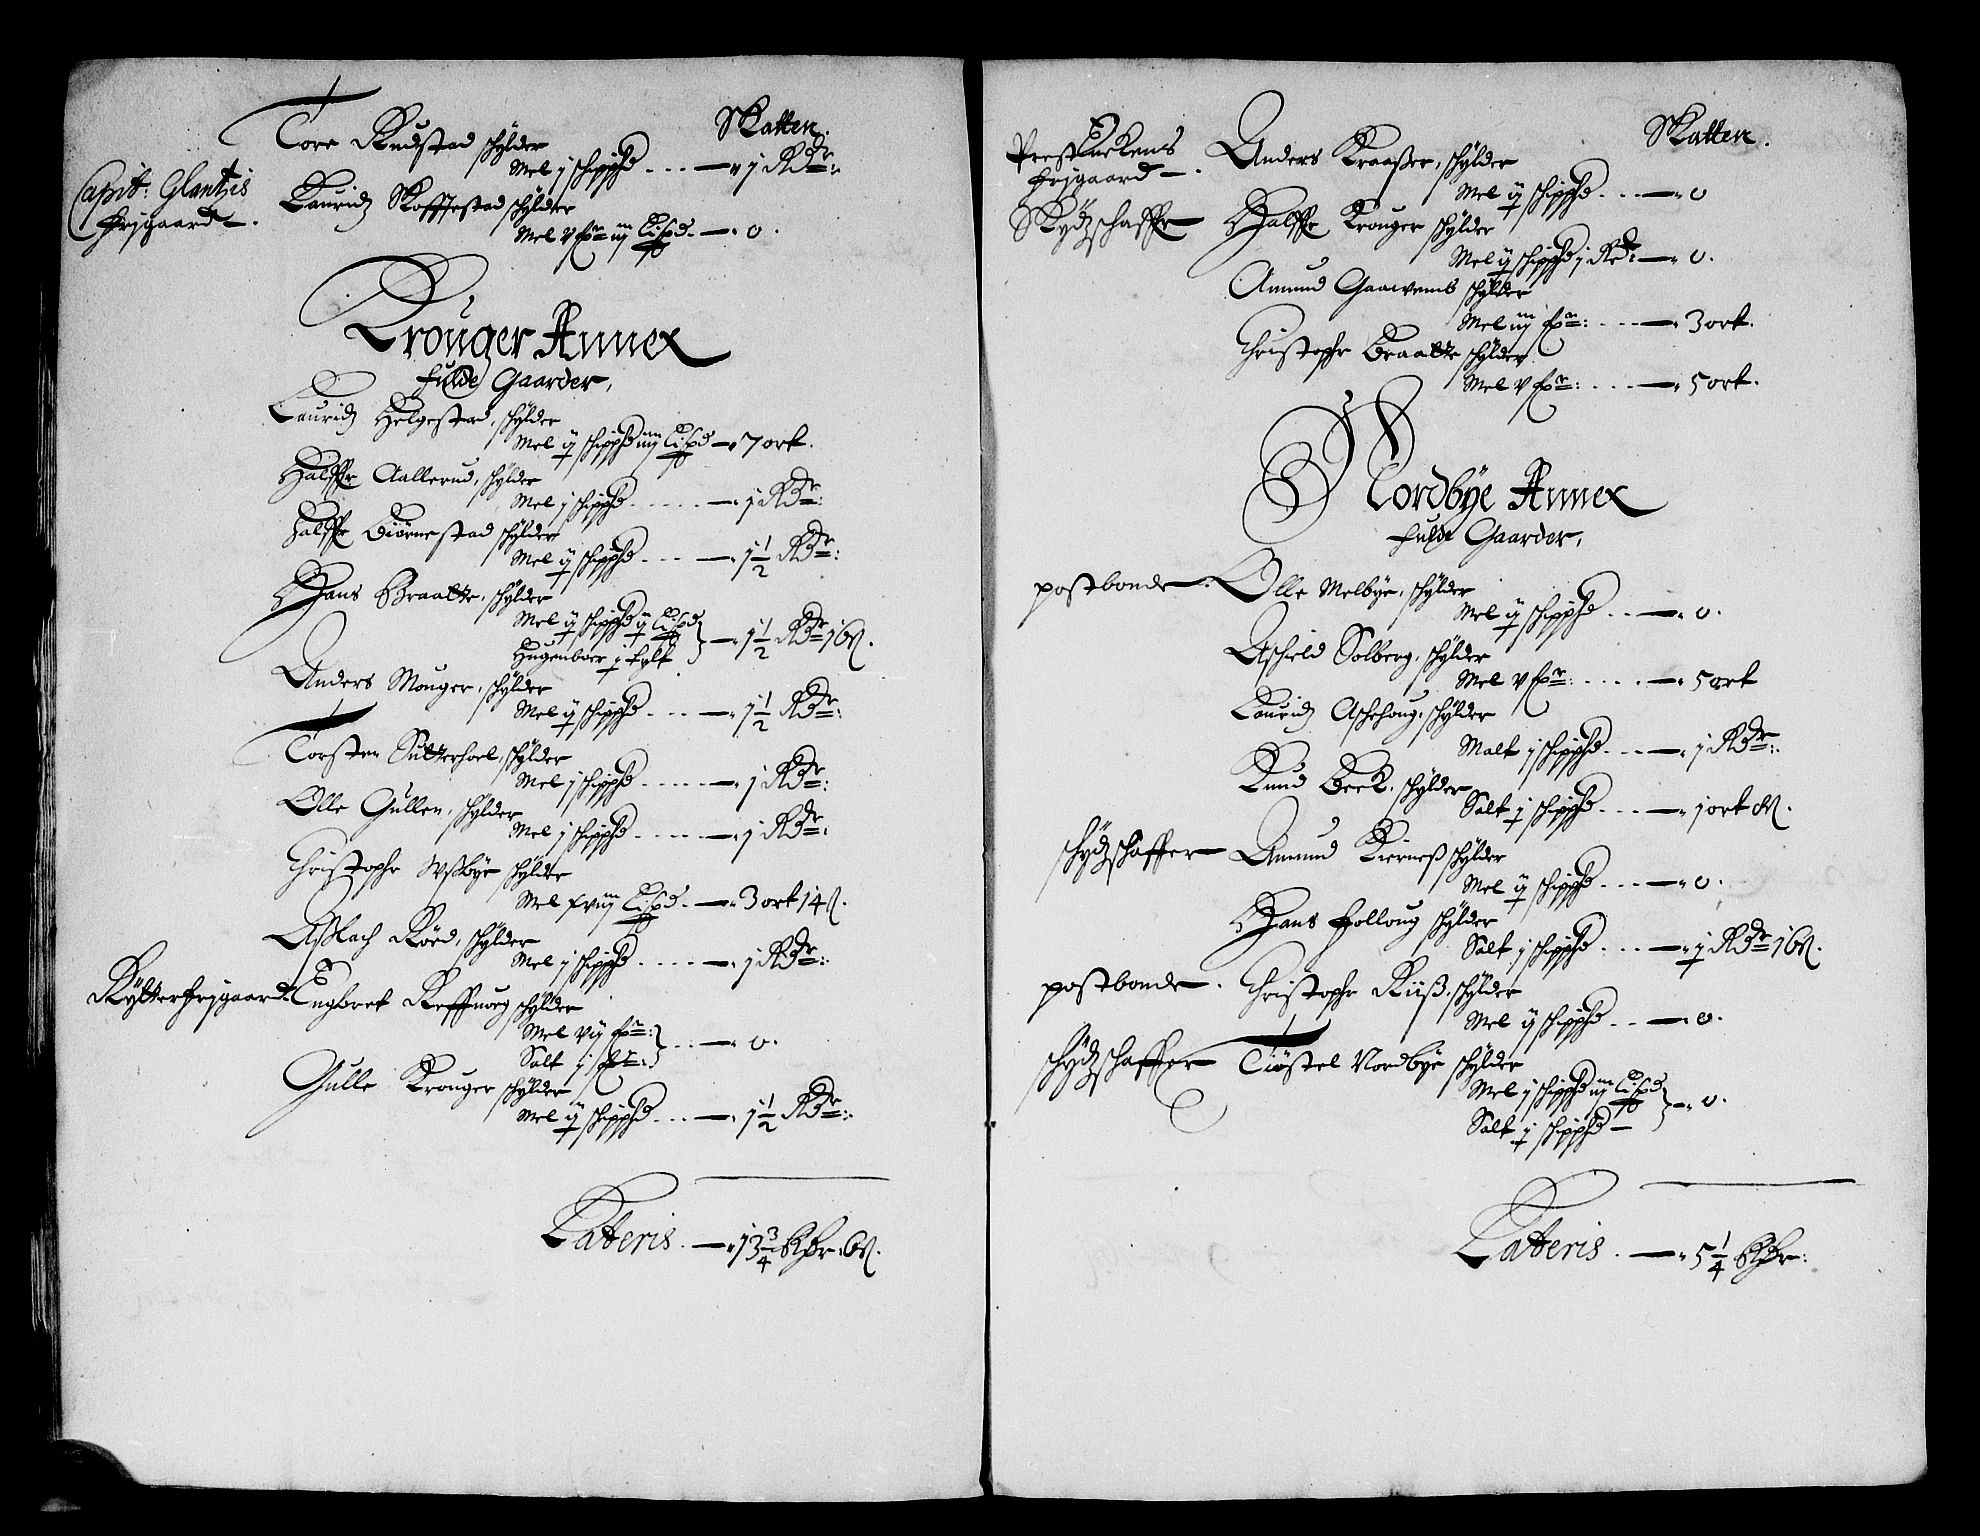 Skatten.
Tore Rudstad schylder
Mel j schippd . . . — j Rdr:
Capit: Glantzis
frjgaard —.
Lauridz Skofftestad schylder
Mel v fr: iiij Lispd. — 0.
Krouger Annex
fulde Gaarder,
Lauridz Helgestad, schylder
Mel ij schippd iiij Lispd — 7 ort.
Halffr Aallerud, schylder
Mel j schippd . . . . . — j Rdr:
Halffr Biørnestad schylder
Mel ij schippd . . . — j ½ Rdr:
Hans Braatte, schylder
Mel ij schippd ij Lispd
Hugenboer j fylt
— j ½ Rdr 16 ß.
Anders Mouger, schylder
Mel ij schippd . . . — j ½ Rdr:
Torsten Sutterhoel, schylder
Mel j schippd . . . . . — j Rdr:
Olle Gullen, schylder
Mel j schippd . . . . . — j Rdr:
Christophr Wssbye schylder
Mel Lispd. — 3 ort 14 ß.
Asslach Røed, schylder
Mel j schippd . . . . — j Rdr:
Rytterfrjgaard Engbret Reffnorg schylder
Mel vij fr:
Salt j fr:
. . . — 0.
Gulle Krouger schylder
Mel ij schippd . . . — j ½ Rdr:
Lateris. — 13 ¾ Rdr. 6 ß.
Skatten.
Prestenckens
frjgaard —.
Anders Kraaker, schylder
Mel ij schippd . . . — 0
Skydzschaffer — Halffr Krouger schylder
Mel ij schippd j Rd: — 0.
Amund Gaarvems schylder
Mel iiij fr: . . . — 3 ort.
Christophr Braatte schylder
Mel v fr: . . . — 5 ort.
Nordbye Annex
fulde Gaarder,
postbonde —. Olle Melbye, schylder
Mel ij schippd . . — 0.
Aschield Solberg, schylder
Mel v fr: . . . . — 5 ort
Lauridz Aschehoug, schylder
Malt j schippd . . . — j Rdr:
Knud Beck, schylder
Salt j schippd . . . — j ort 8 ß.
schydzschaffer — Amund Kierness schylder
Mel ij schippd . . . — 0.
Hans Folloug schylder
Salt j schippd . . . — j Rdr 16 ß.
postbonde —. Christophr Riiss, schylder
Mel ij schippd . . — 0.
schydzschaffer — Tiøstel Nordbye schylder
Mel j schippd iiij Lispd
Salt j schippd —
— 0.
Lateris. — 5 ¼ Rdr: